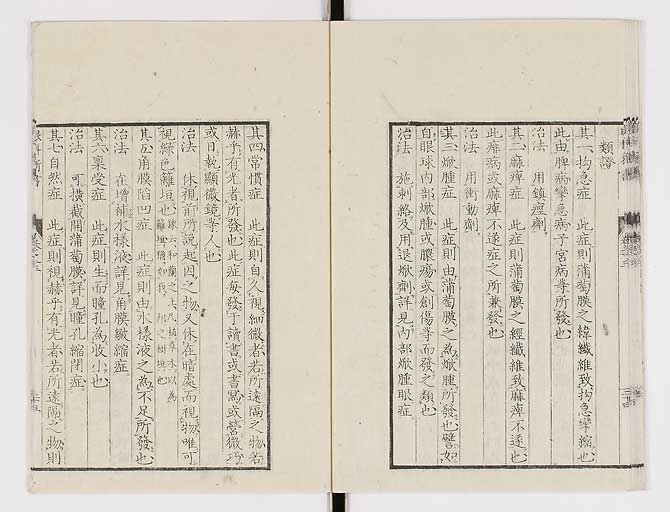 類證
其一拘急症　此症則蒲萄膜之緯纖維致拘急攣縮也
此由脾病攣急病子宮病等所發也
治法　用鎮痙劑
其二麻痺症　此症則蒲萄膜之經纖維致麻痺不遂也
此痺病或麻痺不遂症之所兼發也
治法　用衝動劑
其三焮腫症　此症則由蒲萄膜之為焮腫所發也譬如
自眼球內部焮腫或膿瘍或創傷等而發之類也
治法　施刺絡及用退焮劑詳見內部焮腫眼症
其四常慣症　此症則自久視細微者若所遠隔之物若
赫乎有光者所發也此症每發于讀書或書寫或營微巧
或日執顯微鏡等人也
治法　休視前所說起因之物又休在暗處而視物唯可
視綠色籬垣也
其五角膜陷凹症　此症則由水樣液之為不足所發也
治法　在增補水樣液詳見角膜皺縮症
其六稟受症　此症則生而瞳孔為收小也
治法　可橫截開蒲萄膜詳見瞳孔縮閉症
其七自然症　此症則視赫乎有光者若所遠隔之物則